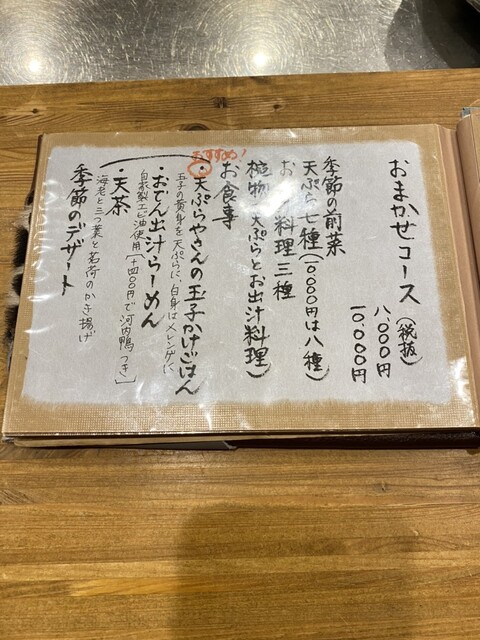 おまかせコース
(税抜)
八、〇〇〇円
一〇、〇〇〇円
季節の前菜
天ぷら七種(一〇、〇〇〇円は八種)
お料理三種
植物、天ぷらとお出汁料理)
お食事
おすすめ!
・天ぷらやさんの玉子かけごはん
玉子の黄身を天ぷらに、白身はメレンゲに
・おでん出汁らーめん
自家製エビ油使用[+四〇〇円で河内鴨つき]
・天茶
海老と三つ葉と茗荷のかき揚げ
季節のデザート